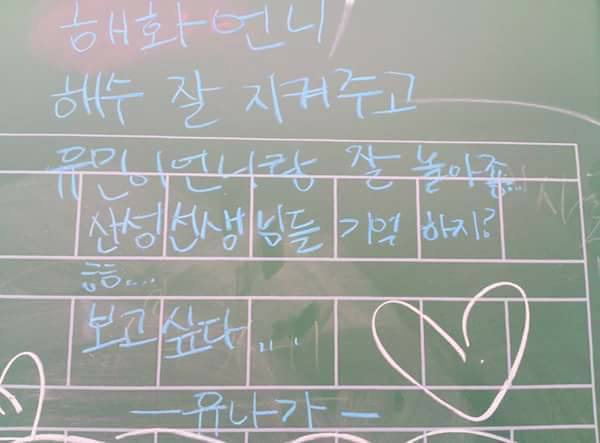 해화 언니
해수 잘 지켜주고
유민이언니랑 잘 놀아줘...
산성 선생님들 기억 하지?
흠흠....
보고싶다....
-유나가-